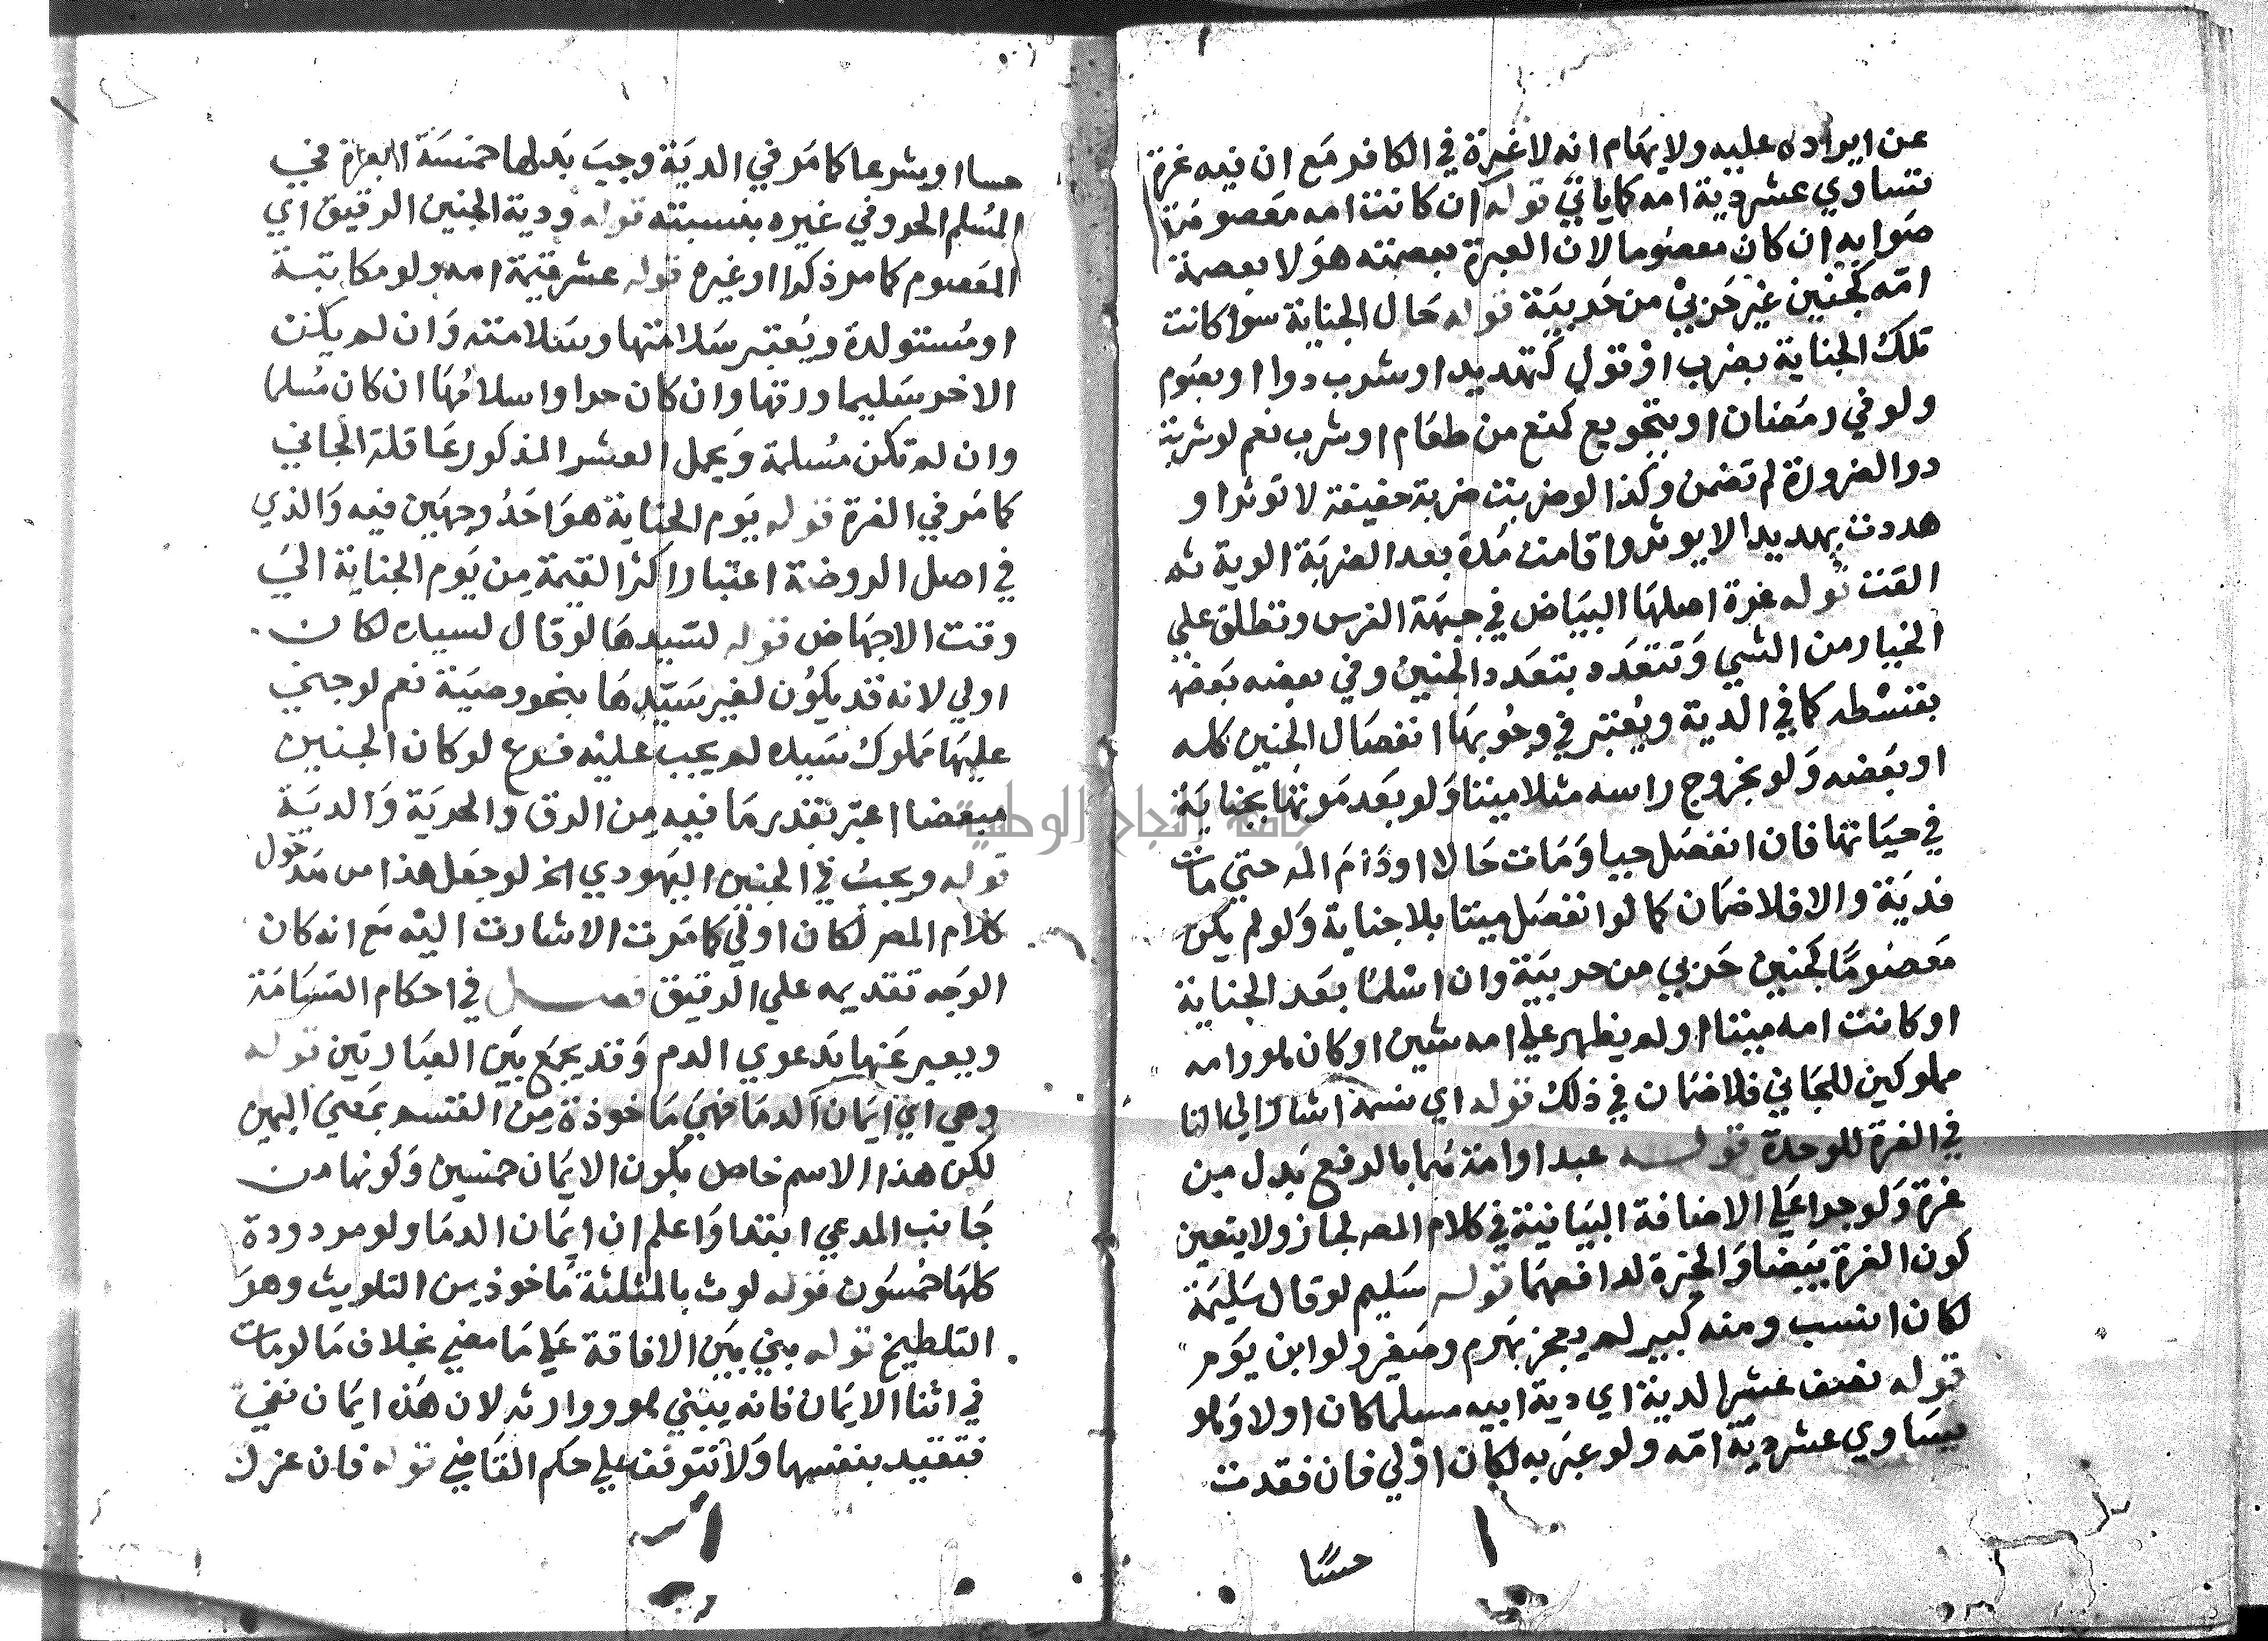 عن ايراده عليه ولايهام انه لا غرة في الكافر مع ان فيه غرة
تساوي عشر دية امه كما ياتي قوله ان كانت امه معصومة
صوابه ان كان معصوما لان العبرة بعصمته هو لا بعصمة
امه كجنين غير حربي من حربية قوله حال الجناية سوا كانت
تلك الجناية بضرب او قول كتهديد او شرب دوا او بصوم
ولو في رمضان او بتجويع كمنع من طعام او شرب نعم لو شربت
دوا لضرورة لم تضمن وكذا لو ضربت ضربة خفيفة لا توثر او
هددت بهديد الا يوثر واقامت مدة بعد الضربة الوية ثم
القت قوله غرة اصلها البياض في جبهة الفرس وتطلق علي
الخيار من الشي وتتعدد بتعدد الجنين وفي بعضه بعضها
بقسطه كما في الدية ويعتبر في وجوبها انفصال الجنين كله
او بعضه ولو بخروج راسه مثلا ميتا ولو بعد موتها بجناية
في حياتها فان انفصل حيا ومات حالا او دام المه حتي مات
فدية والا فلا ضمان كما لو انفصل ميتا بلا جناية ولو لم يكن
معصوما كجنين حربي من حربية وان اسلما بعد الجناية
او كانت امه ميتا او لم يظهر علي امه شين او كان هو وامه
مملوكين للجاني فلا ضمان في ذلك قوله اي نسمة اشار الي التا
في الغرة للوحدة قوله عبد او امة هما بالرفع بدل من
غرة ولو جرا علي الاضافة البيانية في كلام المصر لجاز ولا يتعين
كون الغرة بيضا والخيرة لدافعهما قوله سليم لو قال سليمة
لكان انسب ومنه كبير لم يعجز بهرم وصغير ولو ابن يوم
قوله نصف عشر الدية اي دية ابيه مسلما كان اولا وهو
يساوي عشر دية امه ولو عبر به لكان اولي فان فقدت
حسًا
حسا او شرعا كما مر في الدية وجب بدلها خمسة ابعرة في
المسلم الحر وفي غيره بنسبته قوله ودية الجنين الرقيق اي
المعصوم كما مر ذكرا او غيره قوله عشر قيمة امه ولو مكاتبة
او مستولدة ويعتبر سلامتها وسلامته وان لم يكن
الاخر سليما ورقها وان كان حرا واسلامها ان كان مسلما
وان لم تكن مسلمة ويحمل العشر المذكور عاقلة الجاني
كما مر في الغرة قوله يوم الجناية هو احد وجهين فيه والذي
في اصل الروضة اعتبار اكثر القيمة من يوم الجناية الي
وقت الاجهاض قوله لسيدها لو قال لسيده لكان
اولي لانه قد يكون لغير سيدها بنحو وصية نعم لو جني
عليها مملوك سيده لم يجب عليه فرع لو كان الجنين
مبعضا اعتبر بقدر ما فيه من الرق والحرية والدية
قوله ويجب في الجنين اليهودي الخ لو جعل هذا من مدخول
كلام المصر لكان اولي كما مرت الاشارت اليه مع انه كان
الوجه تقديمه علي الرقيق فصل في احكام القسامة
ويعبر عنها بدعوي الدم وقد يجمع بين العبارتين قوله
وهي اي ايمان الدما فهي ماخوذة من القسم بمعني اليمين
لكن هذا الاسم خاص بكون الايمان خمسين وكونها من
جانب المدعي ابتدا واعلم ان ايمان الدما ولو مردودة
كلها خمسون قوله لوث بالمثلثة ماخوذ من التلويث وهو
التلطيخ قوله بني بين الافاقة علي ما مضي بخلاف ما لو مات
في اثنا الايمان فانه يبتني هو ووارثه لان هذه ايمان نفي
فتفيد بنفسها ولا تتوقف علي حكم القاضي قوله فان عزل
جامعة النجاح الوطنية